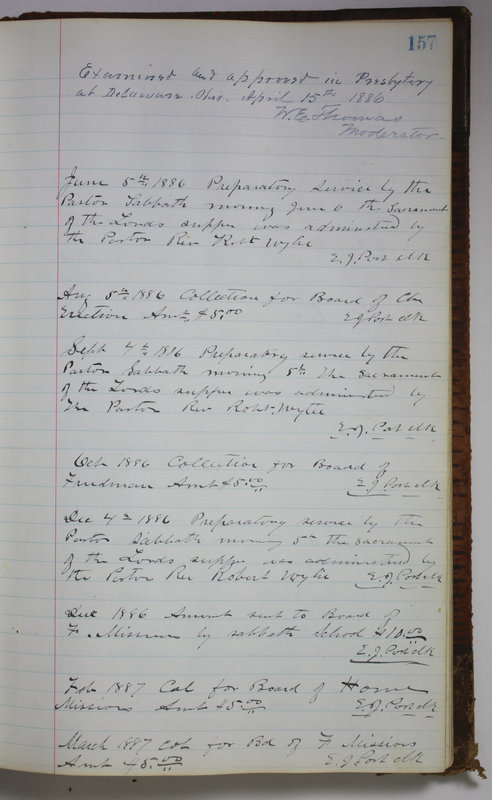 157
Examined and approved in Presbytery
at Delaware Ohio. April 15th 1886
W. E. Thomas
Moderator.
June 5th 1886 Preparatory service by the
Pastor Sabbath morning June 6 the Sacrament
of the Lords supper was administed by
the Pastor Rev Robt Wylie
E. J. Post clk
Aug 5th 1886 Collection for Board of Ch
Erection Amt $5.00
E J Post clk
Sept 4th 1886 Preparatory service by the
Pastor Sabbath morning 5th the Sacrament
of the Lords supper was administered by
the Pastor Rev Robt. Wylie
E. J. Post clk
Oct 1886 Collection for Board of
Friedman Amt $5.00
E. J. Post clk
Dec 4th 1886 Preparatory service by the
Pastor Sabbath morning 5th the Sacrament
of the Lords supper was administed by
the Pastor Rev Robert Wylie E. J. Post clk
Dec 1886 Amount sent to Board of
F. Missions by sabbath school $10.00
E. J. Post clk
Feb 1887 Col for Board of Home
Missions Amt $5.00 E. J. Post clk
March 1887 col for Bd of F Missions
Amt $5.00 E. J Post clk